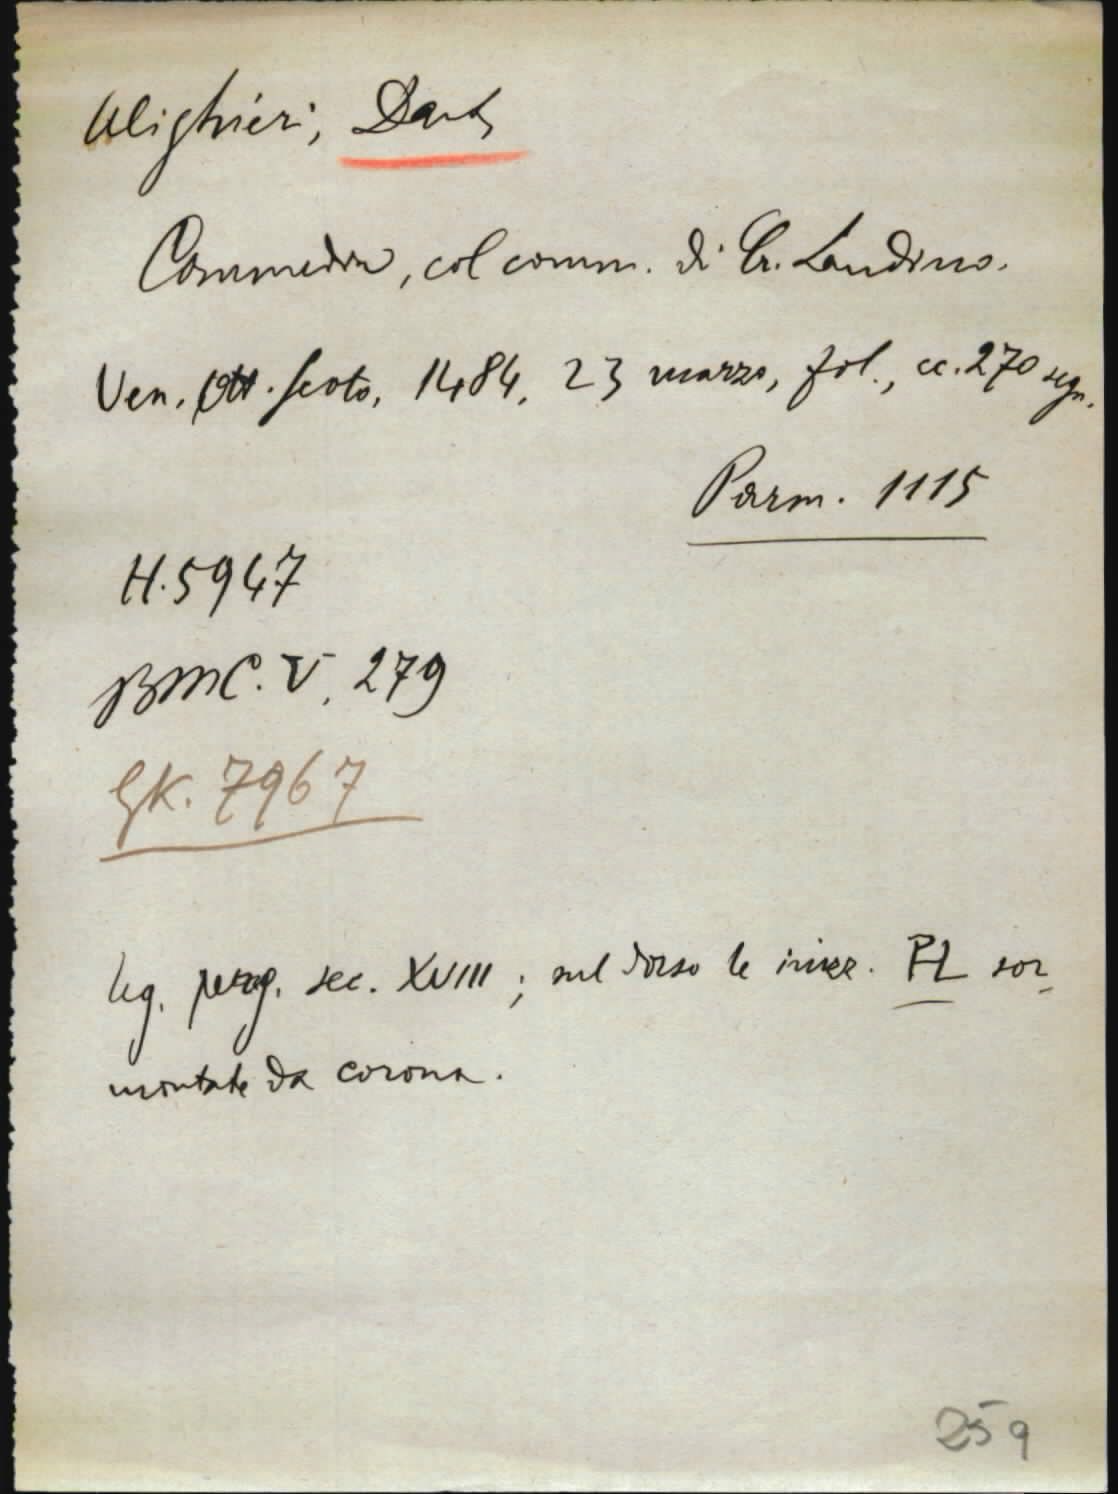 Alighieri, Dante
Commedia, col comm. di Cr. Landino.
Ven. Ott. Scoto, 1484, 23 marzo, fol., cc. 270 segn.
Parm. 1115
H. 5947
BMC. V, 279
GK. 7967
Leg. perg. sec. XVIII; sul dorso le iniz. PL sor-
montate da corona.
259